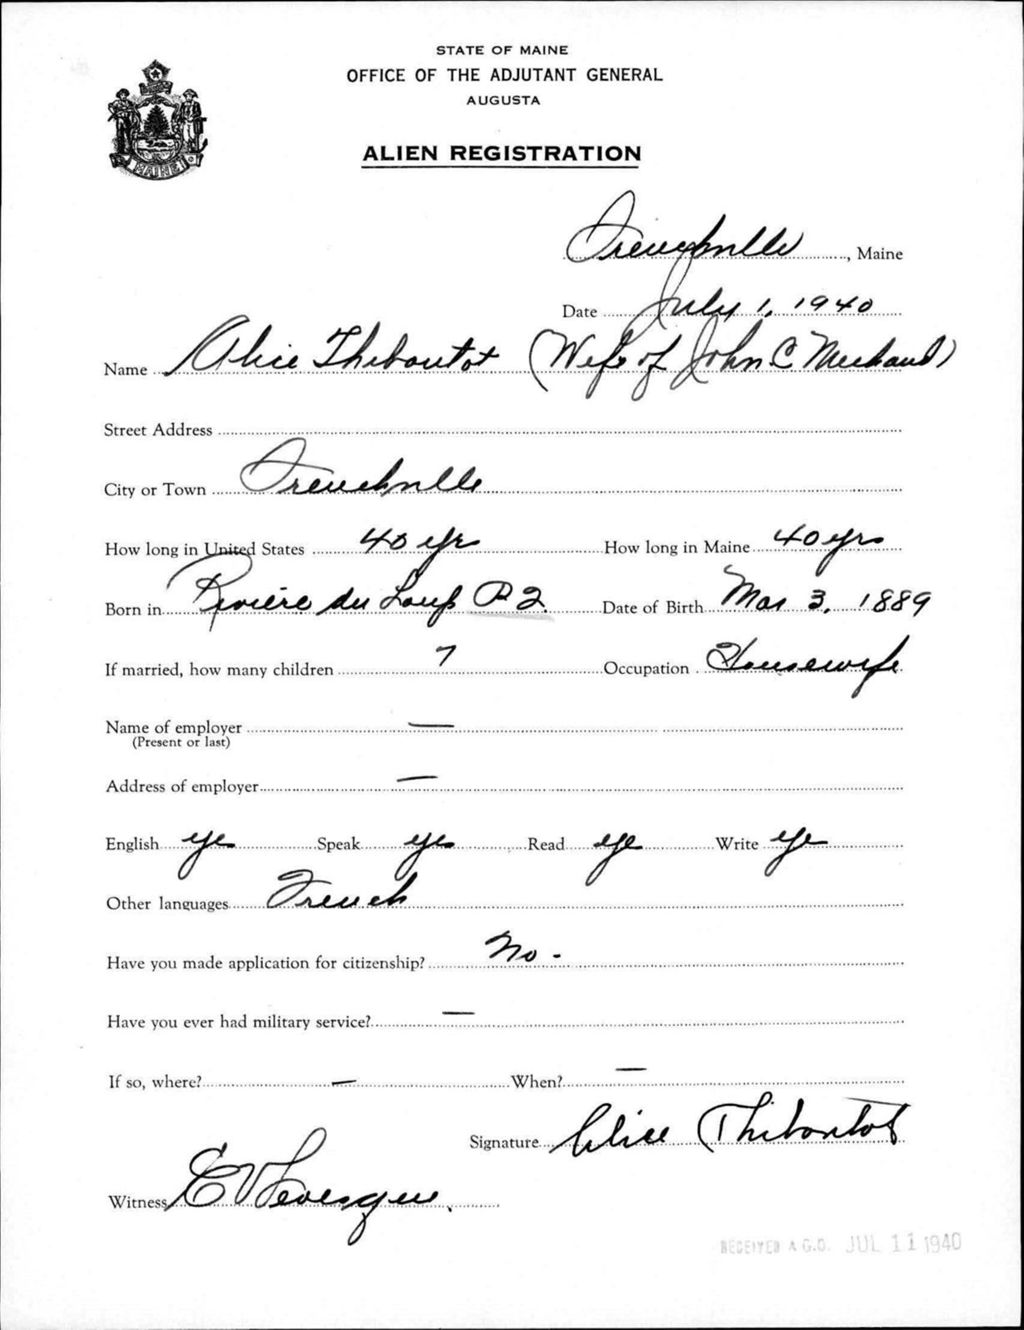 STATE OF MAINE
OFFICE OF THE ADJUTANT GENERAL
AUGUSTA
MAINE
ALIEN REGISTRATION
Frenchville, Maine
Date July 1, 1940
Name Alice Thiboutot (Wife of John C Michaud)
Street Address
City or Town Frenchville
How long in United States 40 yrs How long in Maine 40 yrs
Born in Rivière du Loup P2 Date of Birth Mar 3, 1889
If married, how many children 7 Occupation Housewife
Name of employer —
(Present or last)
Address of employer —
English yes Speak yes Read yes Write yes
Other languages French
Have you made application for citizenship? No -
Have you ever had military service? —
If so, where? — When? —
Signature Alice Thiboutot
Witness E V Levesque.
RECEIVED A.G.O. JUL 11 1940